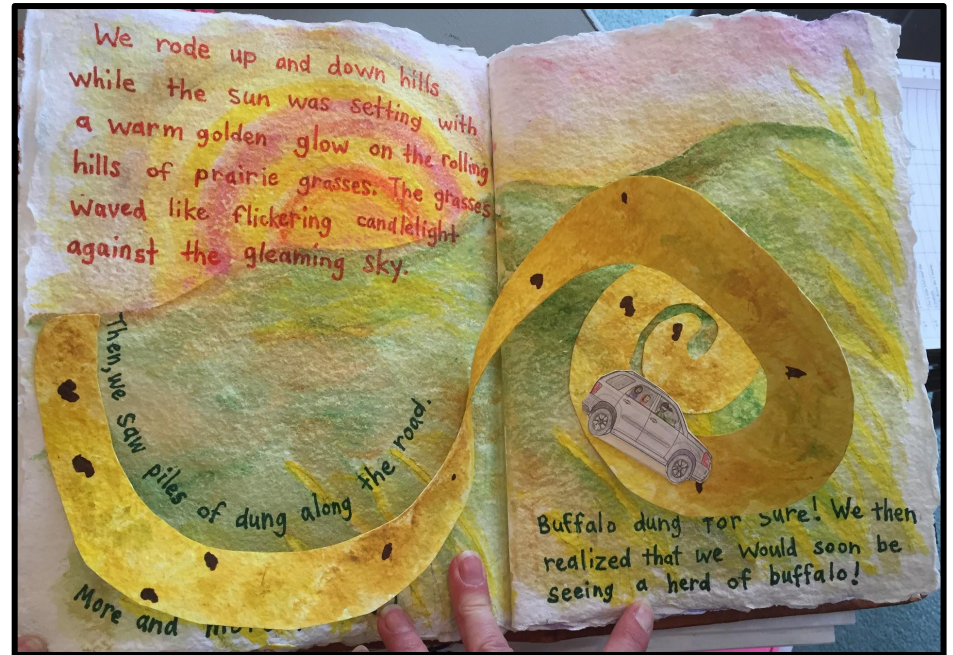 We rode up and down hills
while the sun was setting with
a warm golden glow on the rolling
hills of prairie grasses. The grasses
waved like flickering candlelight
against the gleaming sky.
Then, we saw piles of dung along the road.
More and
Buffalo dung for sure! We then
realized that we would soon be
seeing a herd of buffalo!